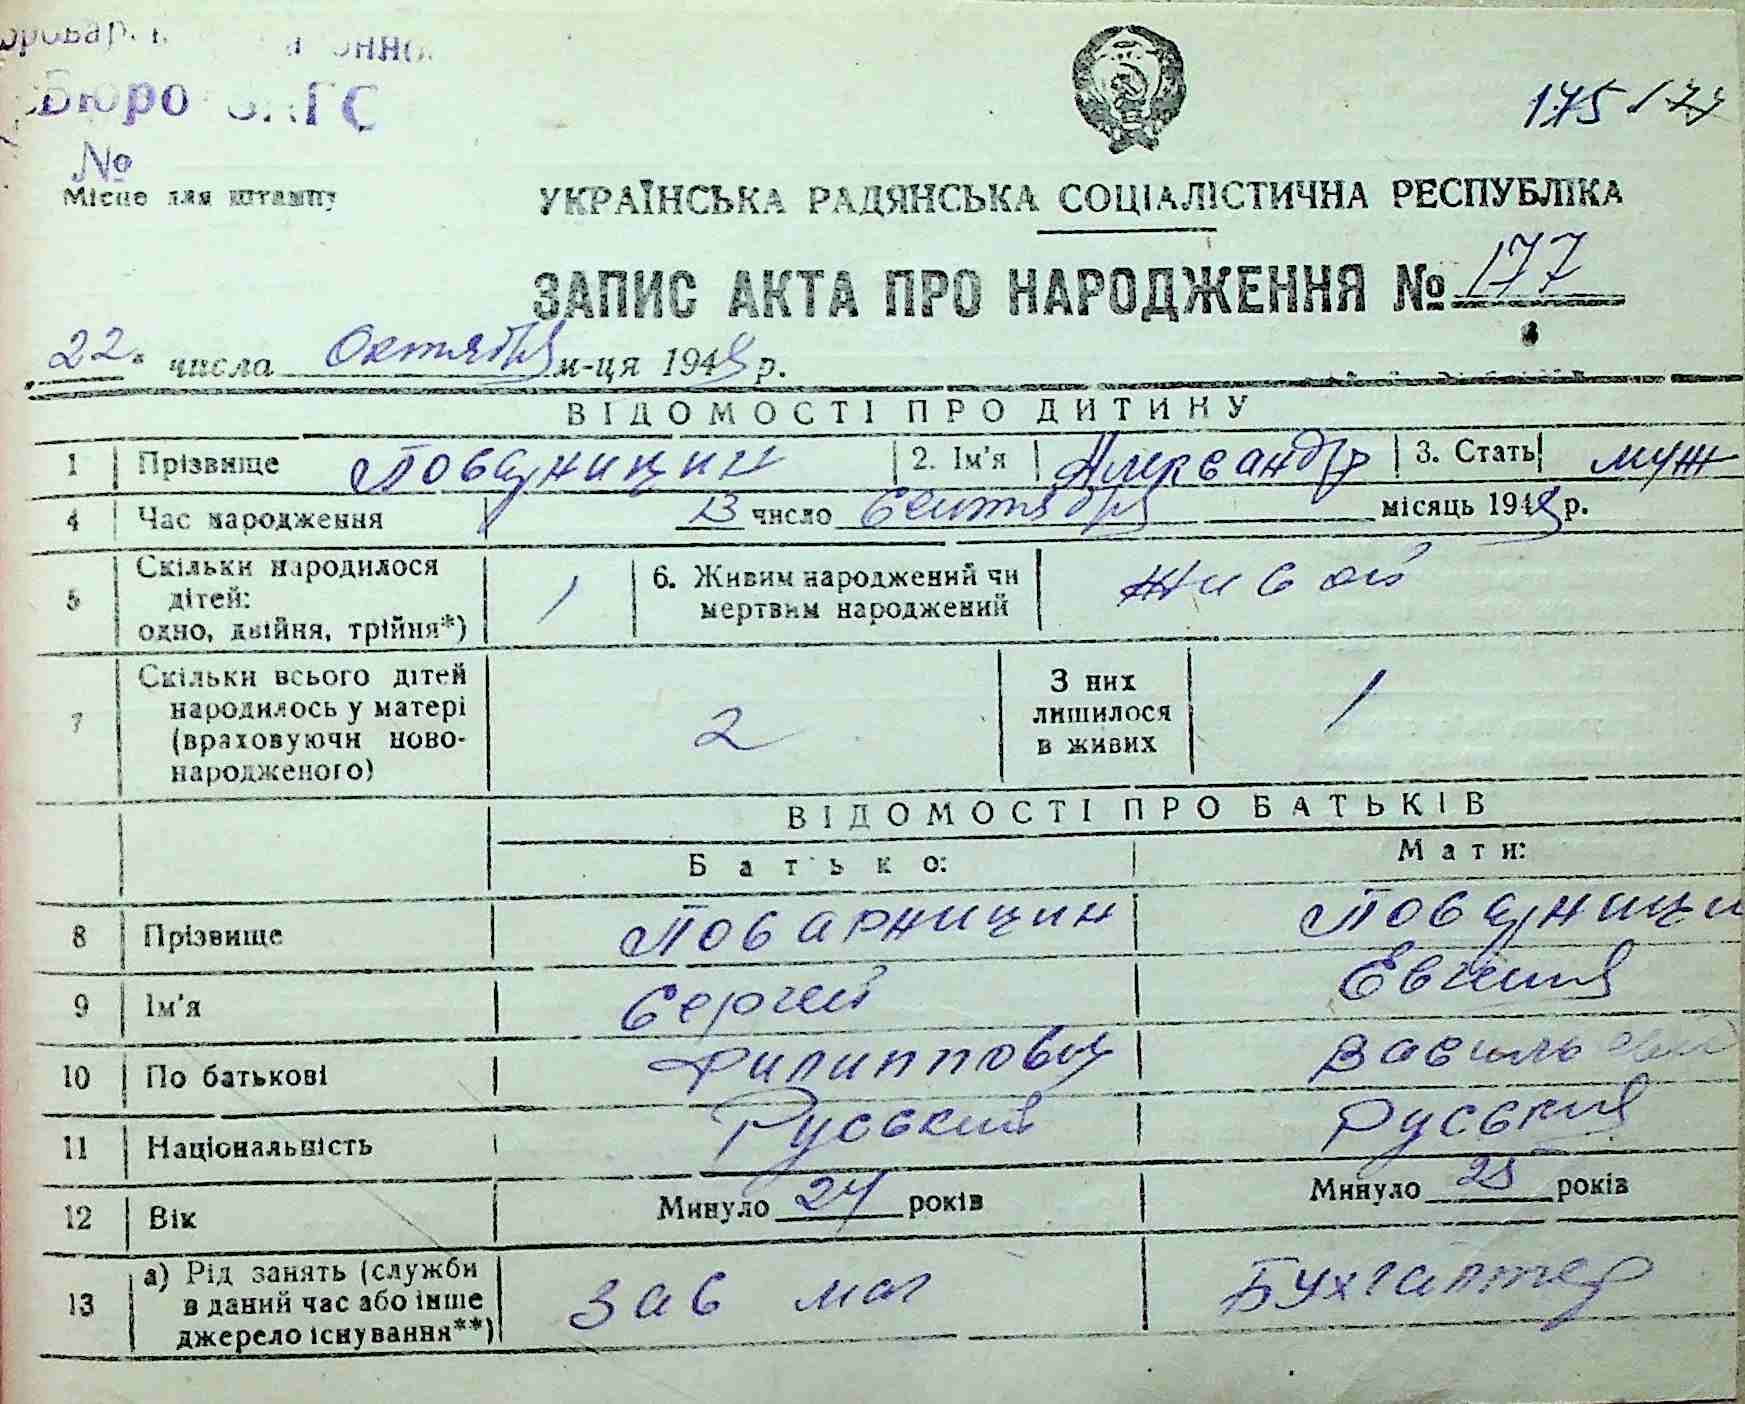 Бюро ЗАГС
№
175 177
Місце для штампу
УКРАЇНСЬКА РАДЯНСЬКА СОЦІАЛІСТИЧНА РЕСПУБЛІКА
ЗАПИС АКТА ПРО НАРОДЖЕННЯ № 177
22 числа Октября м-ця 1948 р.
ВІДОМОСТІ ПРО ДИТИНУ
1 Прізвище Поварницин 2. Ім'я Александр 3. Стать муж
4 Час народження 13 число Сентября місяць 1948 р.
5 Скільки народилося дітей: одно, двійня, трійня*) 1 6. Живим народжений чи мертвим народжений живой
7 Скільки всього дітей народилось у матері (враховуючи ново-народженого) 2 З них лишилося в живих 1
ВІДОМОСТІ ПРО БАТЬКІВ
Батько: Мати:
8 Прізвище Поварницин Поварници
9 Ім'я Сергей Евгения
10 По батькові Филиппович
11 Національність Руський Руський
12 Вік Минуло 24 років Минуло 25 років
13 а) Рід занять (служби в даний час або інше джерело існування**) Зав маг Бухгалтер